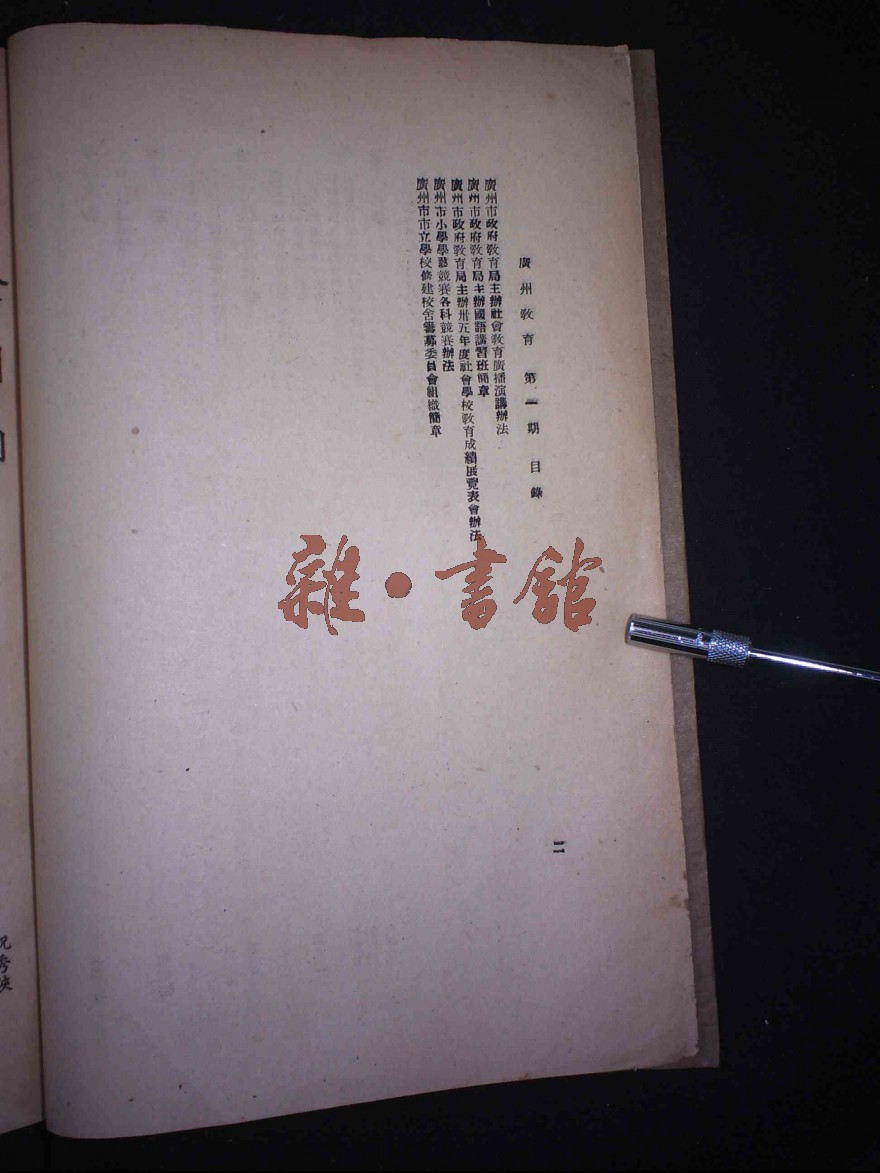 廣州教育 第一期 目錄
廣州市政府教育局主辦社會教育廣播演講辦法
廣州市政府教育局主辦國語講習班簡章
廣州市政府教育局主辦卅五年度社會學校教育成績展覽表會辦法
廣州市小學學藝競賽各科競賽辦法
廣州市市立學校修建校舍籌募委員會組織簡章
二
雜·書館
祝秀俠